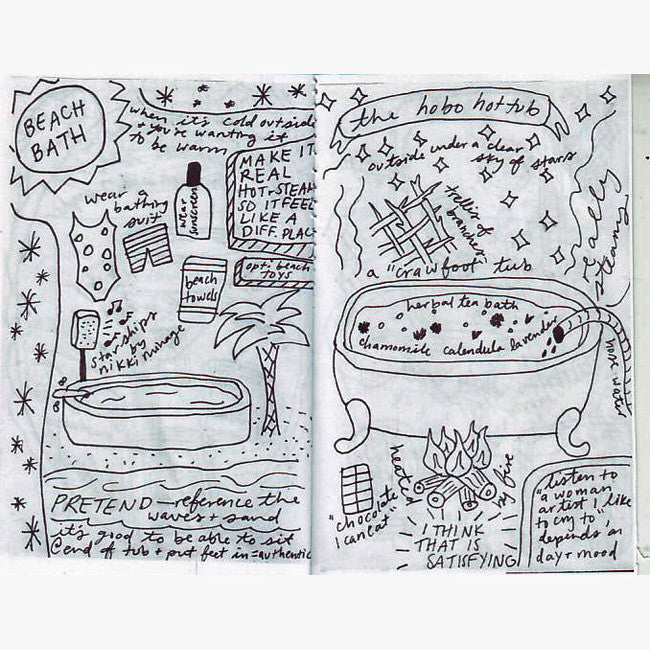 BEACH
BATH
when it's cold outside
+ you're wanting it
to be warm
MAKE IT
REAL
HOT + STEAM
SO IT FEEL
LIKE A
DIFF. PLAC
wear a
bathing
suit
wear
sunscreen
beach
towels
opti beach
TOYS
starships
by
nikki minage
PRETEND — reference the
waves + sand
it's good to be able to sit
@ end of tub + put feet in = authentic
the hobo hot tub
outside under a clear
sky of stars
trellis of
branches
really
steamy
a "crawfoot" tub
herbal tea bath
chamomile calendula lavender
hot water
heated
by fire
"chocolate
I can eat"
I THINK
THAT IS
SATISFYING
listen to
"a woman
artist I like
to cry to"
depends on
day + mood